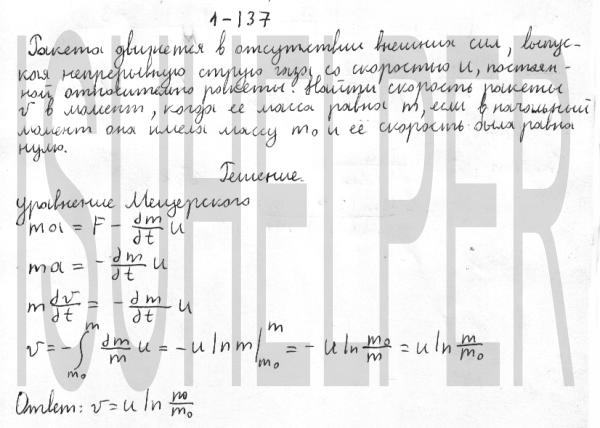 1-137
Ракета движется в отсутствии внешних сил, выпус-
кая непрерывную струю газа со скоростью u, постоян-
ной относительно ракеты. Найти скорость ракеты
v в момент, когда её масса равна m, если в начальный
момент она имела массу m₀ и её скорость была равна
нулю.
Решение.
уравнение Мещерского
ma = F - dm/dt u
ma = - dm/dt u
m dv/dt = - dm/dt u
v = -∫_{m₀}^{m} dm/m u = -u ln m |_{m₀}^{m} = -u ln m₀/m = u ln m/m₀
Ответ: v = u ln m/m₀
ISUHELPER